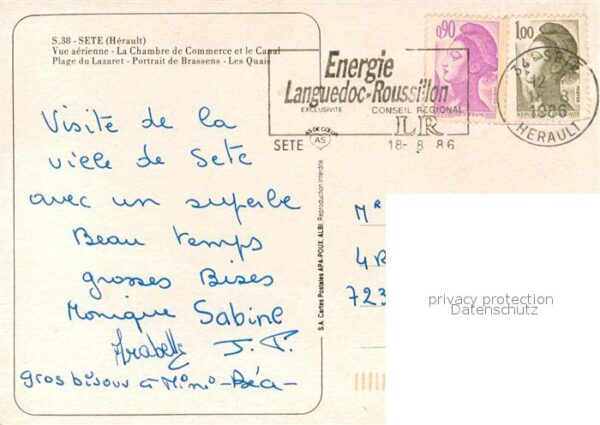 S.38 - SETE (Hérault)
Vue aérienne - La Chambre de Commerce et le Canal
Plage du Lazaret - Portrait de Brassens - Les Quais
Visite de la
ville de Sete
avec un superbe
Beau temps
grosses Bises
Monique Sabine
Arabelle J.P.
gros bisous à Mimi - Béa -
S.A. Cartes Postales APA-POUX, ALBI. Reproduction interdite
EXCLUSIVITE
AS DE CŒUR
AS
Energie
Languedoc-Roussillon
CONSEIL REGIONAL
LR
SETE 18-8 86
0,90
1,00
34 - SETE
12 H
1986
HERAULT
Mr
4 R
723
privacy protection
Datenschutz